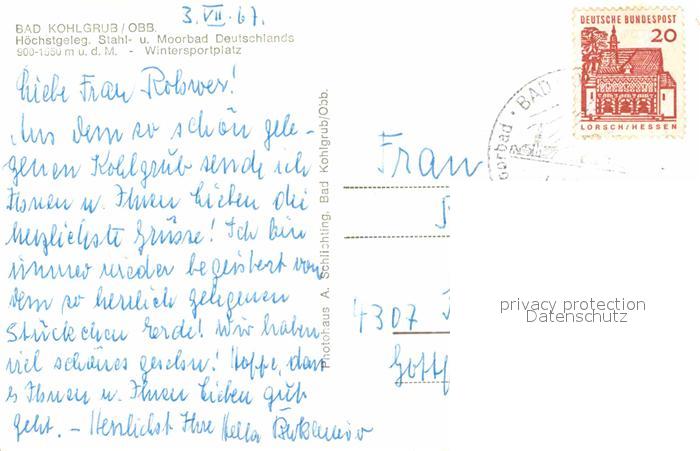 3. VII. 67.
BAD KOHLGRUB/OBB.
Höchstgeleg. Stahl- u. Moorbad Deutschlands
900-1550 m u. d. M. - Wintersportplatz
Liebe Frau
Aus dem so schön gele-
genen Kohlgrub sende ich
Ihnen u. Ihren Lieben die
herzlichste Grüsse! Ich bin
immer wieder begeistert von
dem so herrlich gelegenen
Stückchen Erde! Wir haben
viel schönes gesehn! Hoffe, dass
es Ihnen u. Ihren Lieben gut
geht. - Herzlichst Ihre Hella
Photohaus A. Schlichting, Bad Kohlgrub/Obb.
DEUTSCHE BUNDESPOST
20
LORSCH/HESSEN
oorbad · BAD
Frau
4307
Gottf
privacy protection
Datenschutz